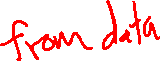 from data